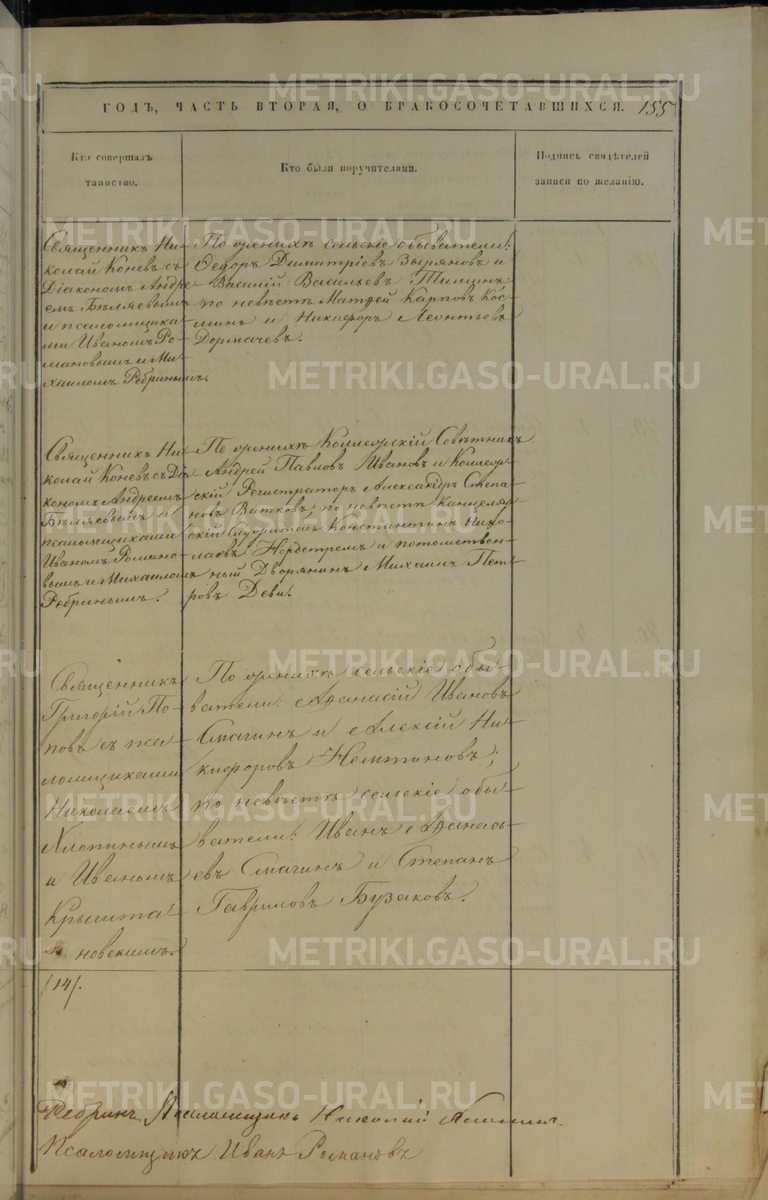 ГОДЪ, ЧАСТЬ ВТОРАЯ, О БРАКОСОЧЕТАВШИХСЯ. 155
Кто совершалъ
таинство.
Кто были поручителями.
Подпись свидѣтелей
записи по желанію.
Священникъ Ни-
колай Коневъ съ
Діакономъ Андре-
емъ Бѣляевымъ
и псаломщика-
ми Иваномъ Ро-
мановымъ и Ми-
хаиломъ Ребринымъ.
По женихѣ сельскіе обыватели:
Ѳедоръ Димитріевъ Зыряновъ и
Василій Васильевъ
по невѣстѣ Матѳей Карповъ Кос-
минъ и Никифоръ Леонтьевъ
Дормачевъ.
Священникъ Ни-
колай Коневъ съ Діа-
кономъ Андреемъ
Бѣляевымъ и
псаломщиками
Иваномъ Романо-
вымъ и Михаиломъ
Ребринымъ.
По женихѣ Коллежскій Совѣтникъ
Андрей Павловъ Ивановъ и Коллеж-
скій Регистраторъ Александръ Степа-
новъ Вятковъ; по невѣстѣ Канцеляр-
скій Служитель Константинъ Нико-
лаевъ Нордстремъ и потомствен-
ный Дворянинъ Михаилъ Пет-
ровъ Деви.
Священникъ
Григорій По-
повъ съ пса-
ломщиками
Николаемъ
Хлопинымъ
и Иваномъ
Крышта-
новскимъ.
По женихѣ сельскіе обы-
ватели: Аѳанасій Ивановъ
Смагинъ и Алексій Ни-
кифоровъ Немтиновъ;
по невѣстѣ сельскіе обы-
ватели: Иванъ Аѳанась-
евъ Смагинъ и Степанъ
Гавриловъ Бузаковъ.
/14/.
Ребринъ Псаломщикъ Николай
Псаломщикъ Иванъ Романовъ
METRIKI.GASO-URAL.RU